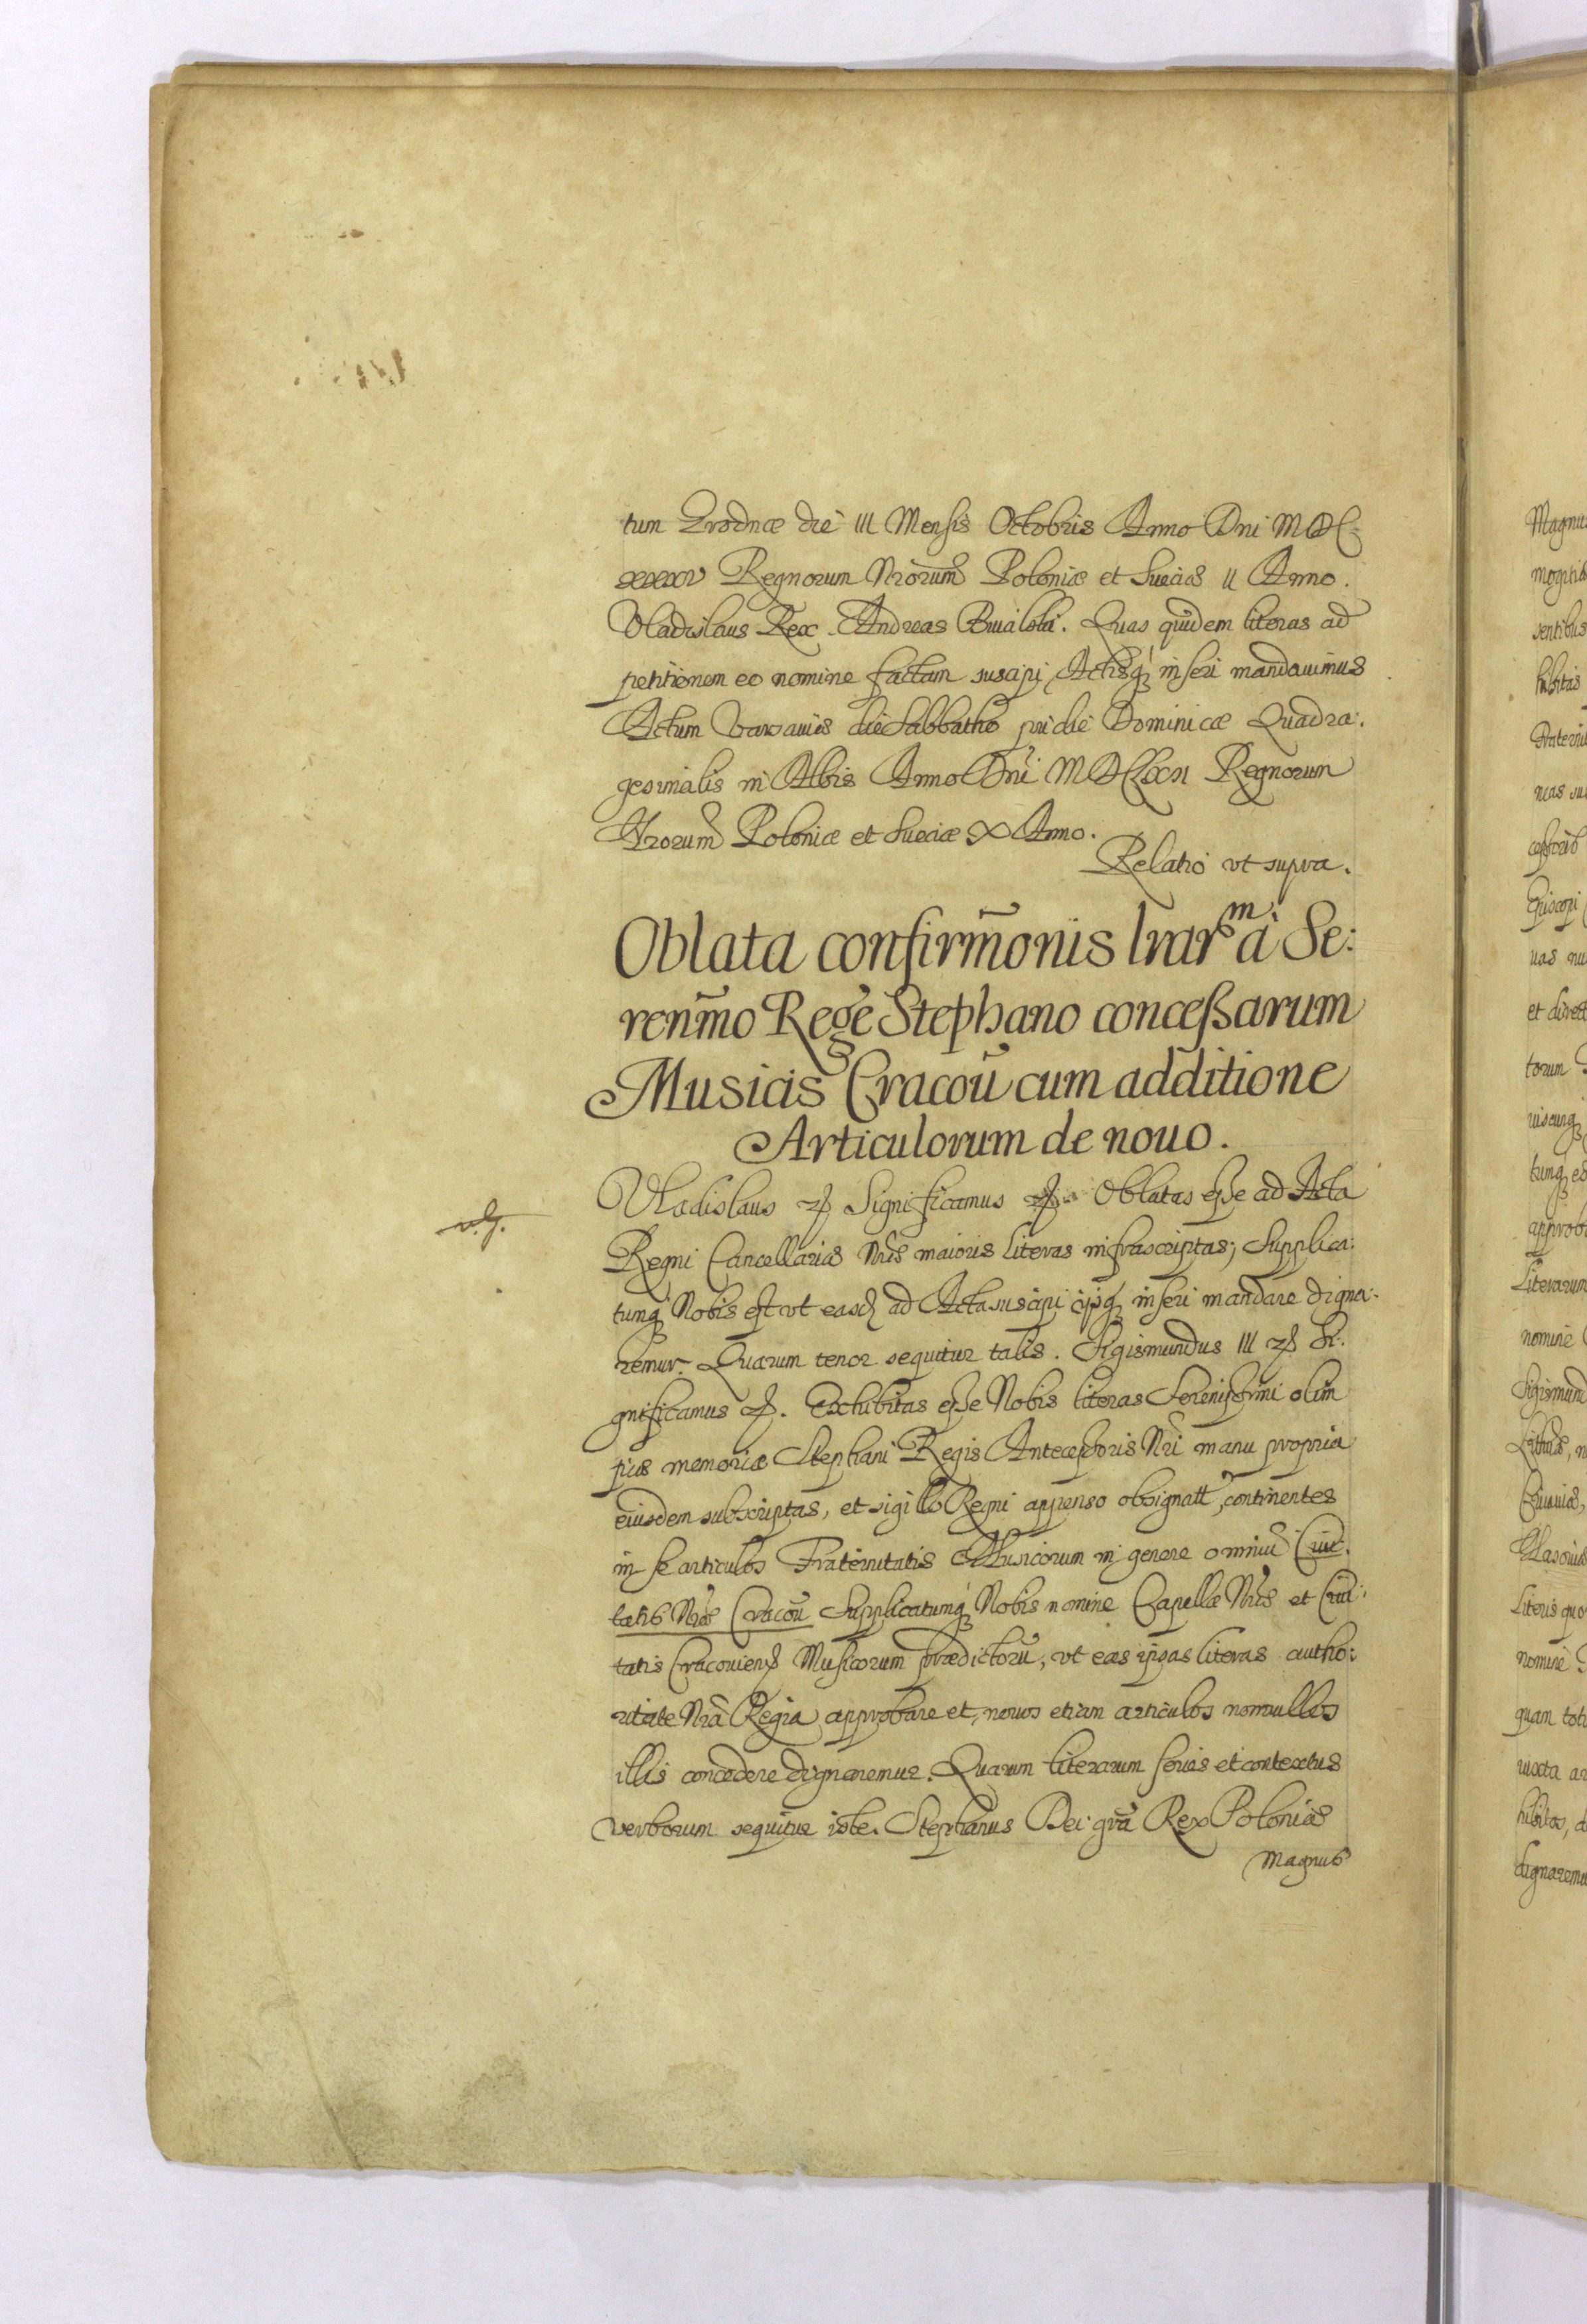 tum Grodnæ die III Mensis Octobris Anno Dni MDC
xxxxv Regnorum Nrorum Poloniæ et Sueciæ II Anno.
Vladislaus Rex. Andreas Quas quidem literas ad
petitionem eo nomine factam suscipi Actisq inseri mandauimus
Actum Varsauiæ die Sabbatho pridie Dominicæ Quadra:
gesimalis in Albis Anno Dni Regnorum
Nrorum Poloniæ et Sueciæ X Anno.
Relatio vt supra.
Oblata confirmonis lrarm à Se:
renmo Rege Stephano conceßarum
Musicis Cracou cum additione
Articulorum de nouo.
Vladislaus Significamus Oblatas esse ad Acta
Regni Cancellariæ Nræ maioris literas infrascriptas; Supplica:
tumq Nobis est vt easd ad Acta suscipi ijsq inseri mandare digna:
remur. Quarum tenor sequitur talis. Sigismundus III Si:
gnificamus Exhibitas esse Nobis literas Serenissimi olim
piæ memoriæ Stephani Regis Antecessoris Nri manu propria
eiusdem subscriptas, et sigillo Regni appenso obsignatt, continentes
in se articulos Fraternitatis Musicorum in genere omniu Ciui:
tatis Nræ Cracou Supplicatumq Nobis nomine Capellæ Nræ et Ciui:
tatis Cracouiens Musicorum prædictoru, vt eas ipsas literas autho:
ritate Nra Regia approbare et, nouos etiam articulos nonnullos
illis concedere dignaremur. Quarum literarum series et contextus
verborum sequitur iste. Stephanus Dei gra Rex Poloniæ
Magnus